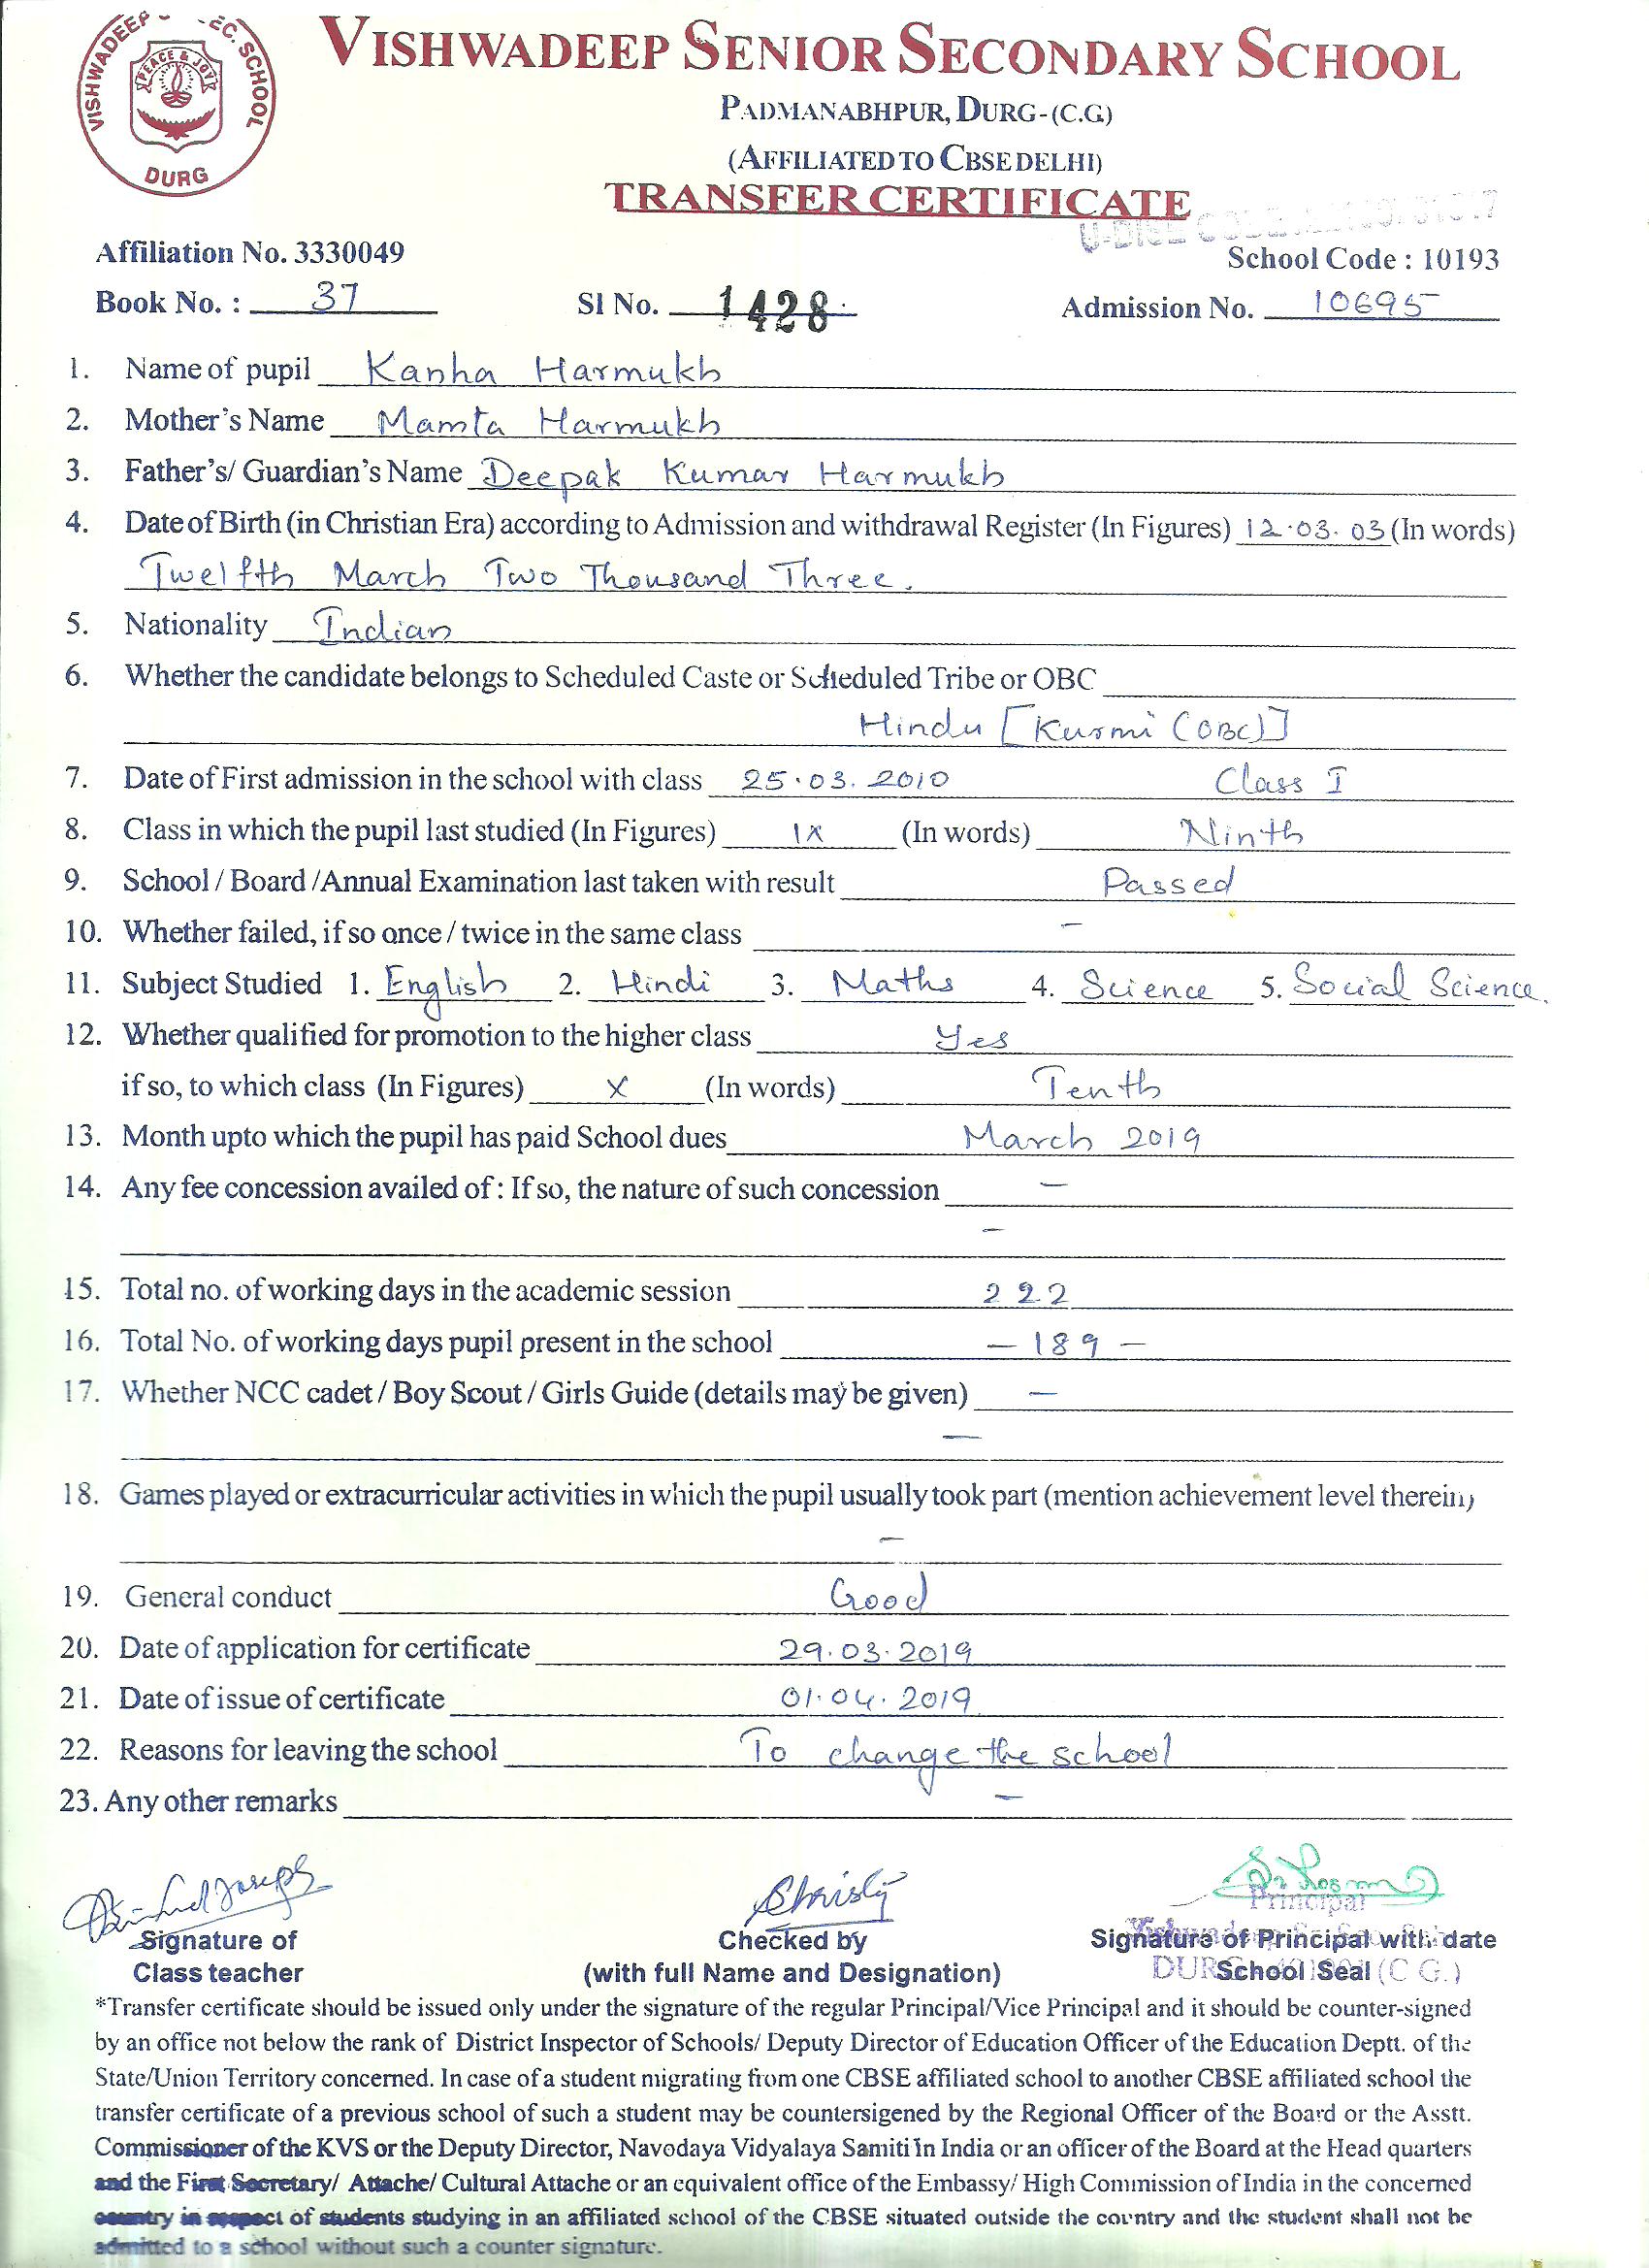 VISHWADEEP SEC. SCHOOL
PEACE & JOY
DURG
VISHWADEEP SENIOR SECONDARY SCHOOL
PADMANABHPUR, DURG-(C.G.)
(AFFILIATED TO CBSE DELHI)
TRANSFER CERTIFICATE
U-DISE CODE
Affiliation No. 3330049 School Code : 10193
Book No. : 37 Sl No. 1428 Admission No. 10695
1. Name of pupil Kanha Harmukh
2. Mother's Name Mamta Harmukh
3. Father's/ Guardian's Name Deepak Kumar Harmukh
4. Date of Birth (in Christian Era) according to Admission and withdrawal Register (In Figures) 12.03.03 (In words)
Twelfth March Two Thousand Three.
5. Nationality Indian
6. Whether the candidate belongs to Scheduled Caste or Scheduled Tribe or OBC
Hindu [Kurmi (OBC)]
7. Date of First admission in the school with class 25.03.2010 Class I
8. Class in which the pupil last studied (In Figures) IX (In words) Ninth
9. School / Board /Annual Examination last taken with result Passed
10. Whether failed, if so once / twice in the same class -
11. Subject Studied 1. English 2. Hindi 3. Maths 4. Science 5. Social Science.
12. Whether qualified for promotion to the higher class Yes
if so, to which class (In Figures) X (In words) Tenth
13. Month upto which the pupil has paid School dues March 2019
14. Any fee concession availed of : If so, the nature of such concession -
-
15. Total no. of working days in the academic session 222
16. Total No. of working days pupil present in the school - 189 -
17. Whether NCC cadet / Boy Scout / Girls Guide (details may be given) -
-
18. Games played or extracurricular activities in which the pupil usually took part (mention achievement level therein)
-
19. General conduct Good
20. Date of application for certificate 29.03.2019
21. Date of issue of certificate 01.04.2019
22. Reasons for leaving the school To change the school
23. Any other remarks -
Principal
Signature of Checked by Signature of Principal with date
Class teacher (with full Name and Designation) School Seal
DURG (C G.)
*Transfer certificate should be issued only under the signature of the regular Principal/Vice Principal and it should be counter-signed
by an office not below the rank of District Inspector of Schools/ Deputy Director of Education Officer of the Education Deptt. of the
State/Union Territory concerned. In case of a student migrating from one CBSE affiliated school to another CBSE affiliated school the
transfer certificate of a previous school of such a student may be countersigened by the Regional Officer of the Board or the Asstt.
Commissioner of the KVS or the Deputy Director, Navodaya Vidyalaya Samiti in India or an officer of the Board at the Head quarters
and the First Secretary/ Attache/ Cultural Attache or an equivalent office of the Embassy/ High Commission of India in the concerned
country in respect of students studying in an affiliated school of the CBSE situated outside the country and the student shall not be
admitted to a school without such a counter signature.